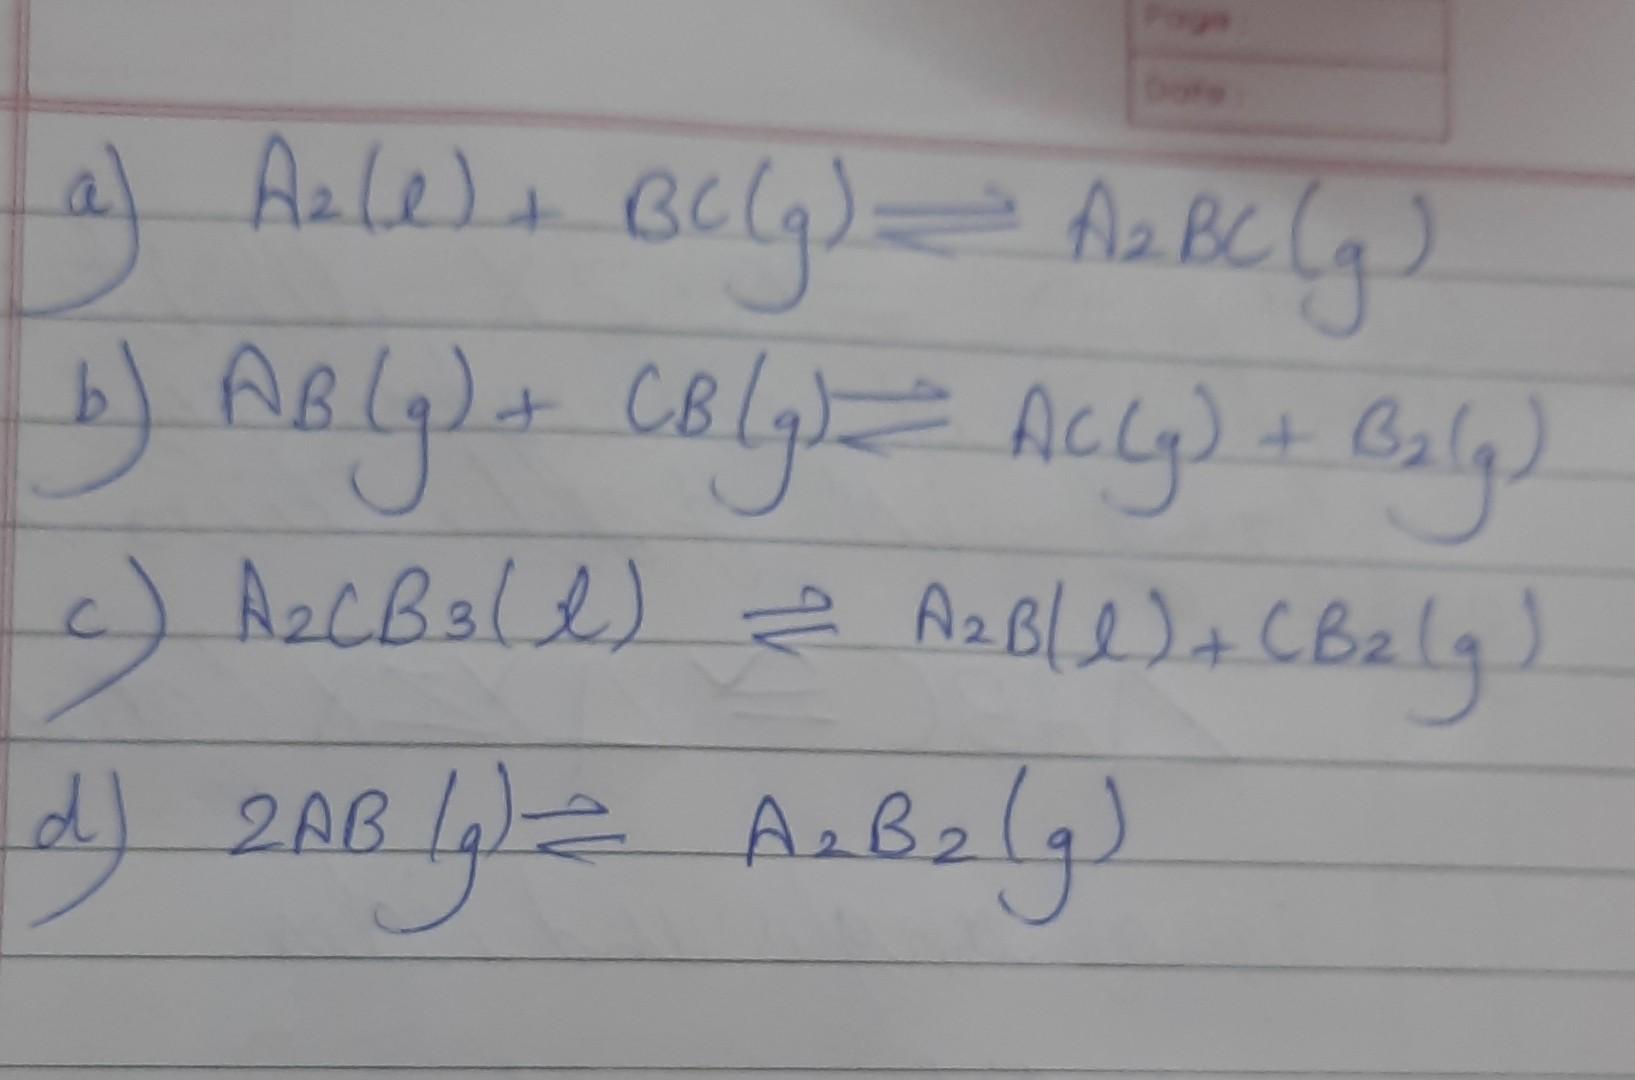 Page:
Date:
a) A₂(l) + BC(g) ⇌ A₂BC(g)
b) AB(g) + CB(g) ⇌ AC(g) + B₂(g)
c) A₂CB₃(l) ⇌ A₂B(l) + CB₂(g)
d) 2AB(g) ⇌ A₂B₂(g)